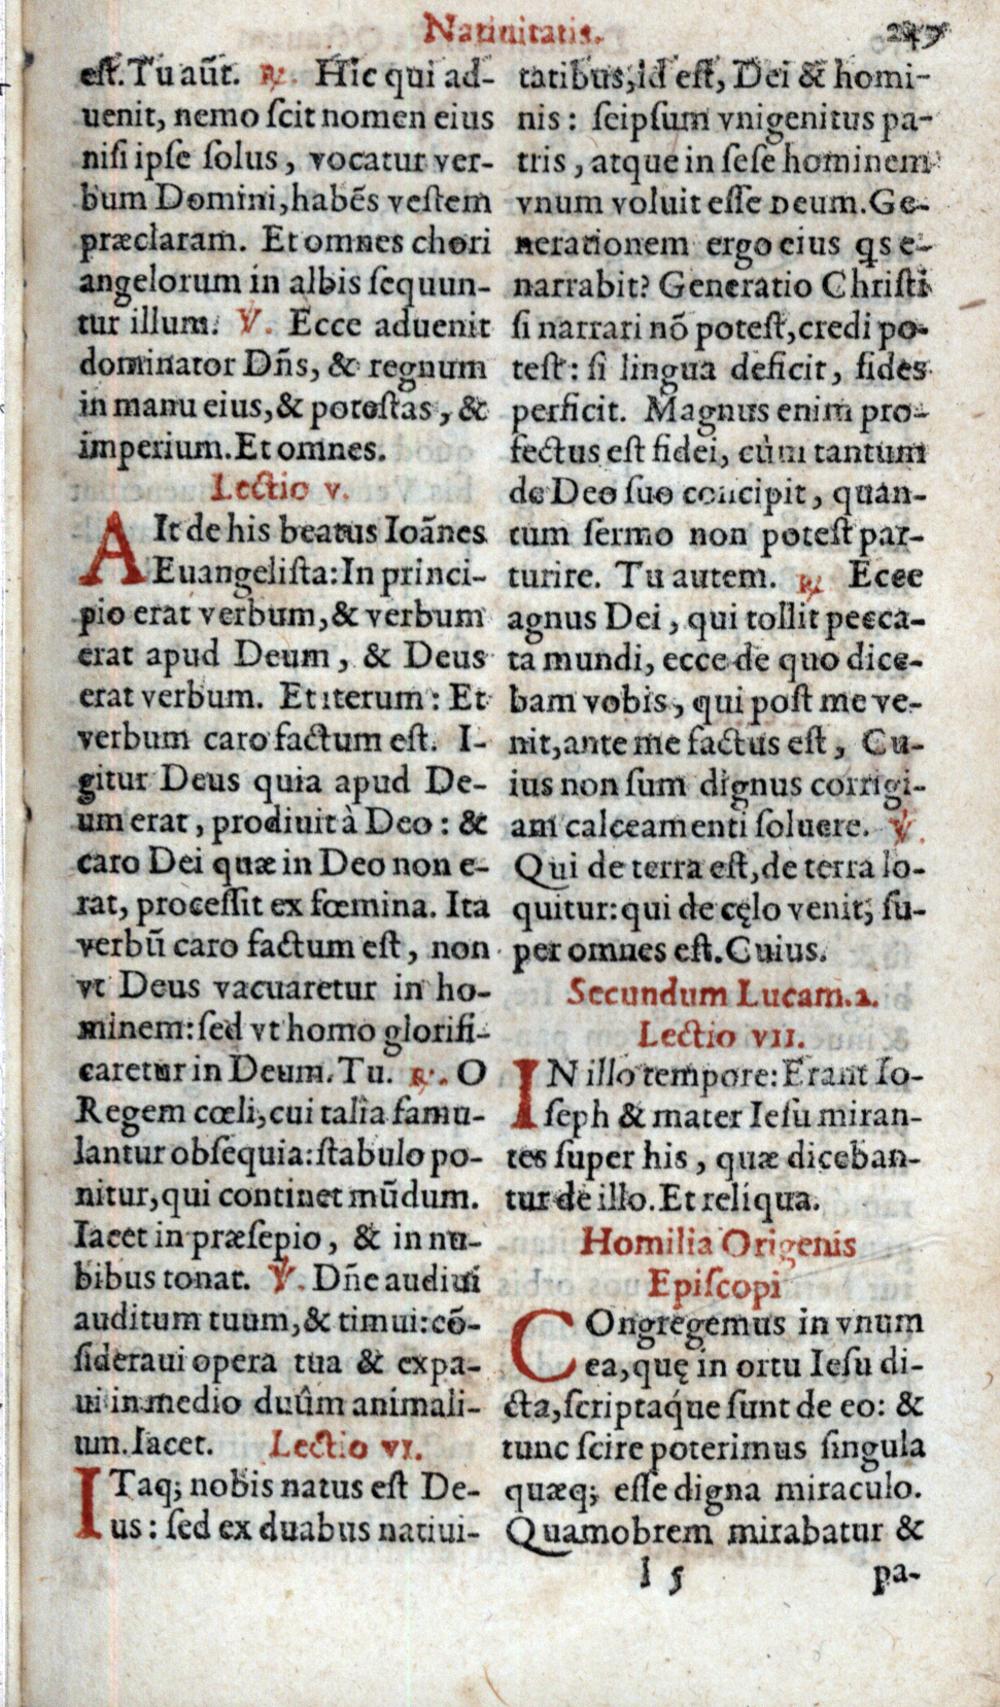 Natiuitatis. 249
est. Tu aūt. ℟. Hic qui ad-
uenit, nemo scit nomen eius
nisi ipse solus, vocatur ver-
bum Domini, habēs vestem
præclaram. Et omnes chori
angelorum in albis sequun-
tur illum. ℣. Ecce aduenit
dominator Dñs, & regnum
in manu eius, & potestas, &
imperium. Et omnes.
Lectio v.
AIt de his beatus Ioānes
Euangelista: In princi-
pio erat verbum, & verbum
erat apud Deum, & Deus
erat verbum. Et iterum: Et
verbum caro factum est. I-
gitur Deus quia apud De-
um erat, prodiuit à Deo: &
caro Dei quæ in Deo non e-
rat, processit ex fœmina. Ita
verbū caro factum est, non
vt Deus vacuaretur in ho-
minem: sed vt homo glorifi-
caretur in Deum. Tu. ℟. O
Regem cœli, cui talia famu-
lantur obsequia: stabulo po-
nitur, qui continet mūdum.
Iacet in præsepio, & in nu-
bibus tonat. ℣. Dñe audiui
auditum tuum, & timui: cō-
sideraui opera tua & expa-
ui in medio duûm animali-
um. Iacet. Lectio vi.
ITaq; nobis natus est De-
us: sed ex duabus natiui-
tatibus, id est, Dei & homi-
nis: seipsum vnigenitus pa-
tris, atque in sese hominem
vnum voluit esse Deum. Ge-
nerationem ergo eius qs e-
narrabit? Generatio Christi
si narrari nō potest, credi po-
test: si lingua deficit, fides
perficit. Magnus enim pro-
fectus est fidei, cùm tantum
de Deo suo concipit, quan-
tum sermo non potest par-
turire. Tu autem. ℟ Ecce
agnus Dei, qui tollit pecca-
ta mundi, ecce de quo dice-
bam vobis, qui post me ve-
nit, ante me factus est, Cu-
ius non sum dignus corrigi-
am calceamenti soluere. ℣.
Qui de terra est, de terra lo-
quitur: qui de cęlo venit, su-
per omnes est. Cuius.
Secundum Lucam. 2.
Lectio vii.
IN illo tempore: Erant Io-
seph & mater Iesu miran-
tes super his, quæ diceban-
tur de illo. Et reliqua.
Homilia Origenis
Episcopi
COngregemus in vnum
ea, quę in ortu Iesu di-
cta, scriptaq́ue sunt de eo: &
tunc scire poterimus singula
quæq; esse digna miraculo.
Quamobrem mirabatur &
I 5 pa-